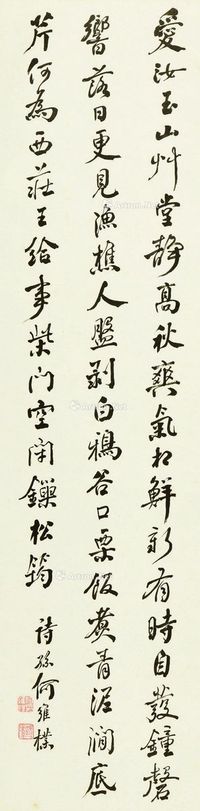 愛汝玉山艸堂靜高秋爽氣相鮮新有時自發鐘磬
響落日更見漁樵人盤剝白鴉谷口栗飯煮青泥澗底
芹何為西莊王給事柴門空閉鎖松筠
詩孫何維樸